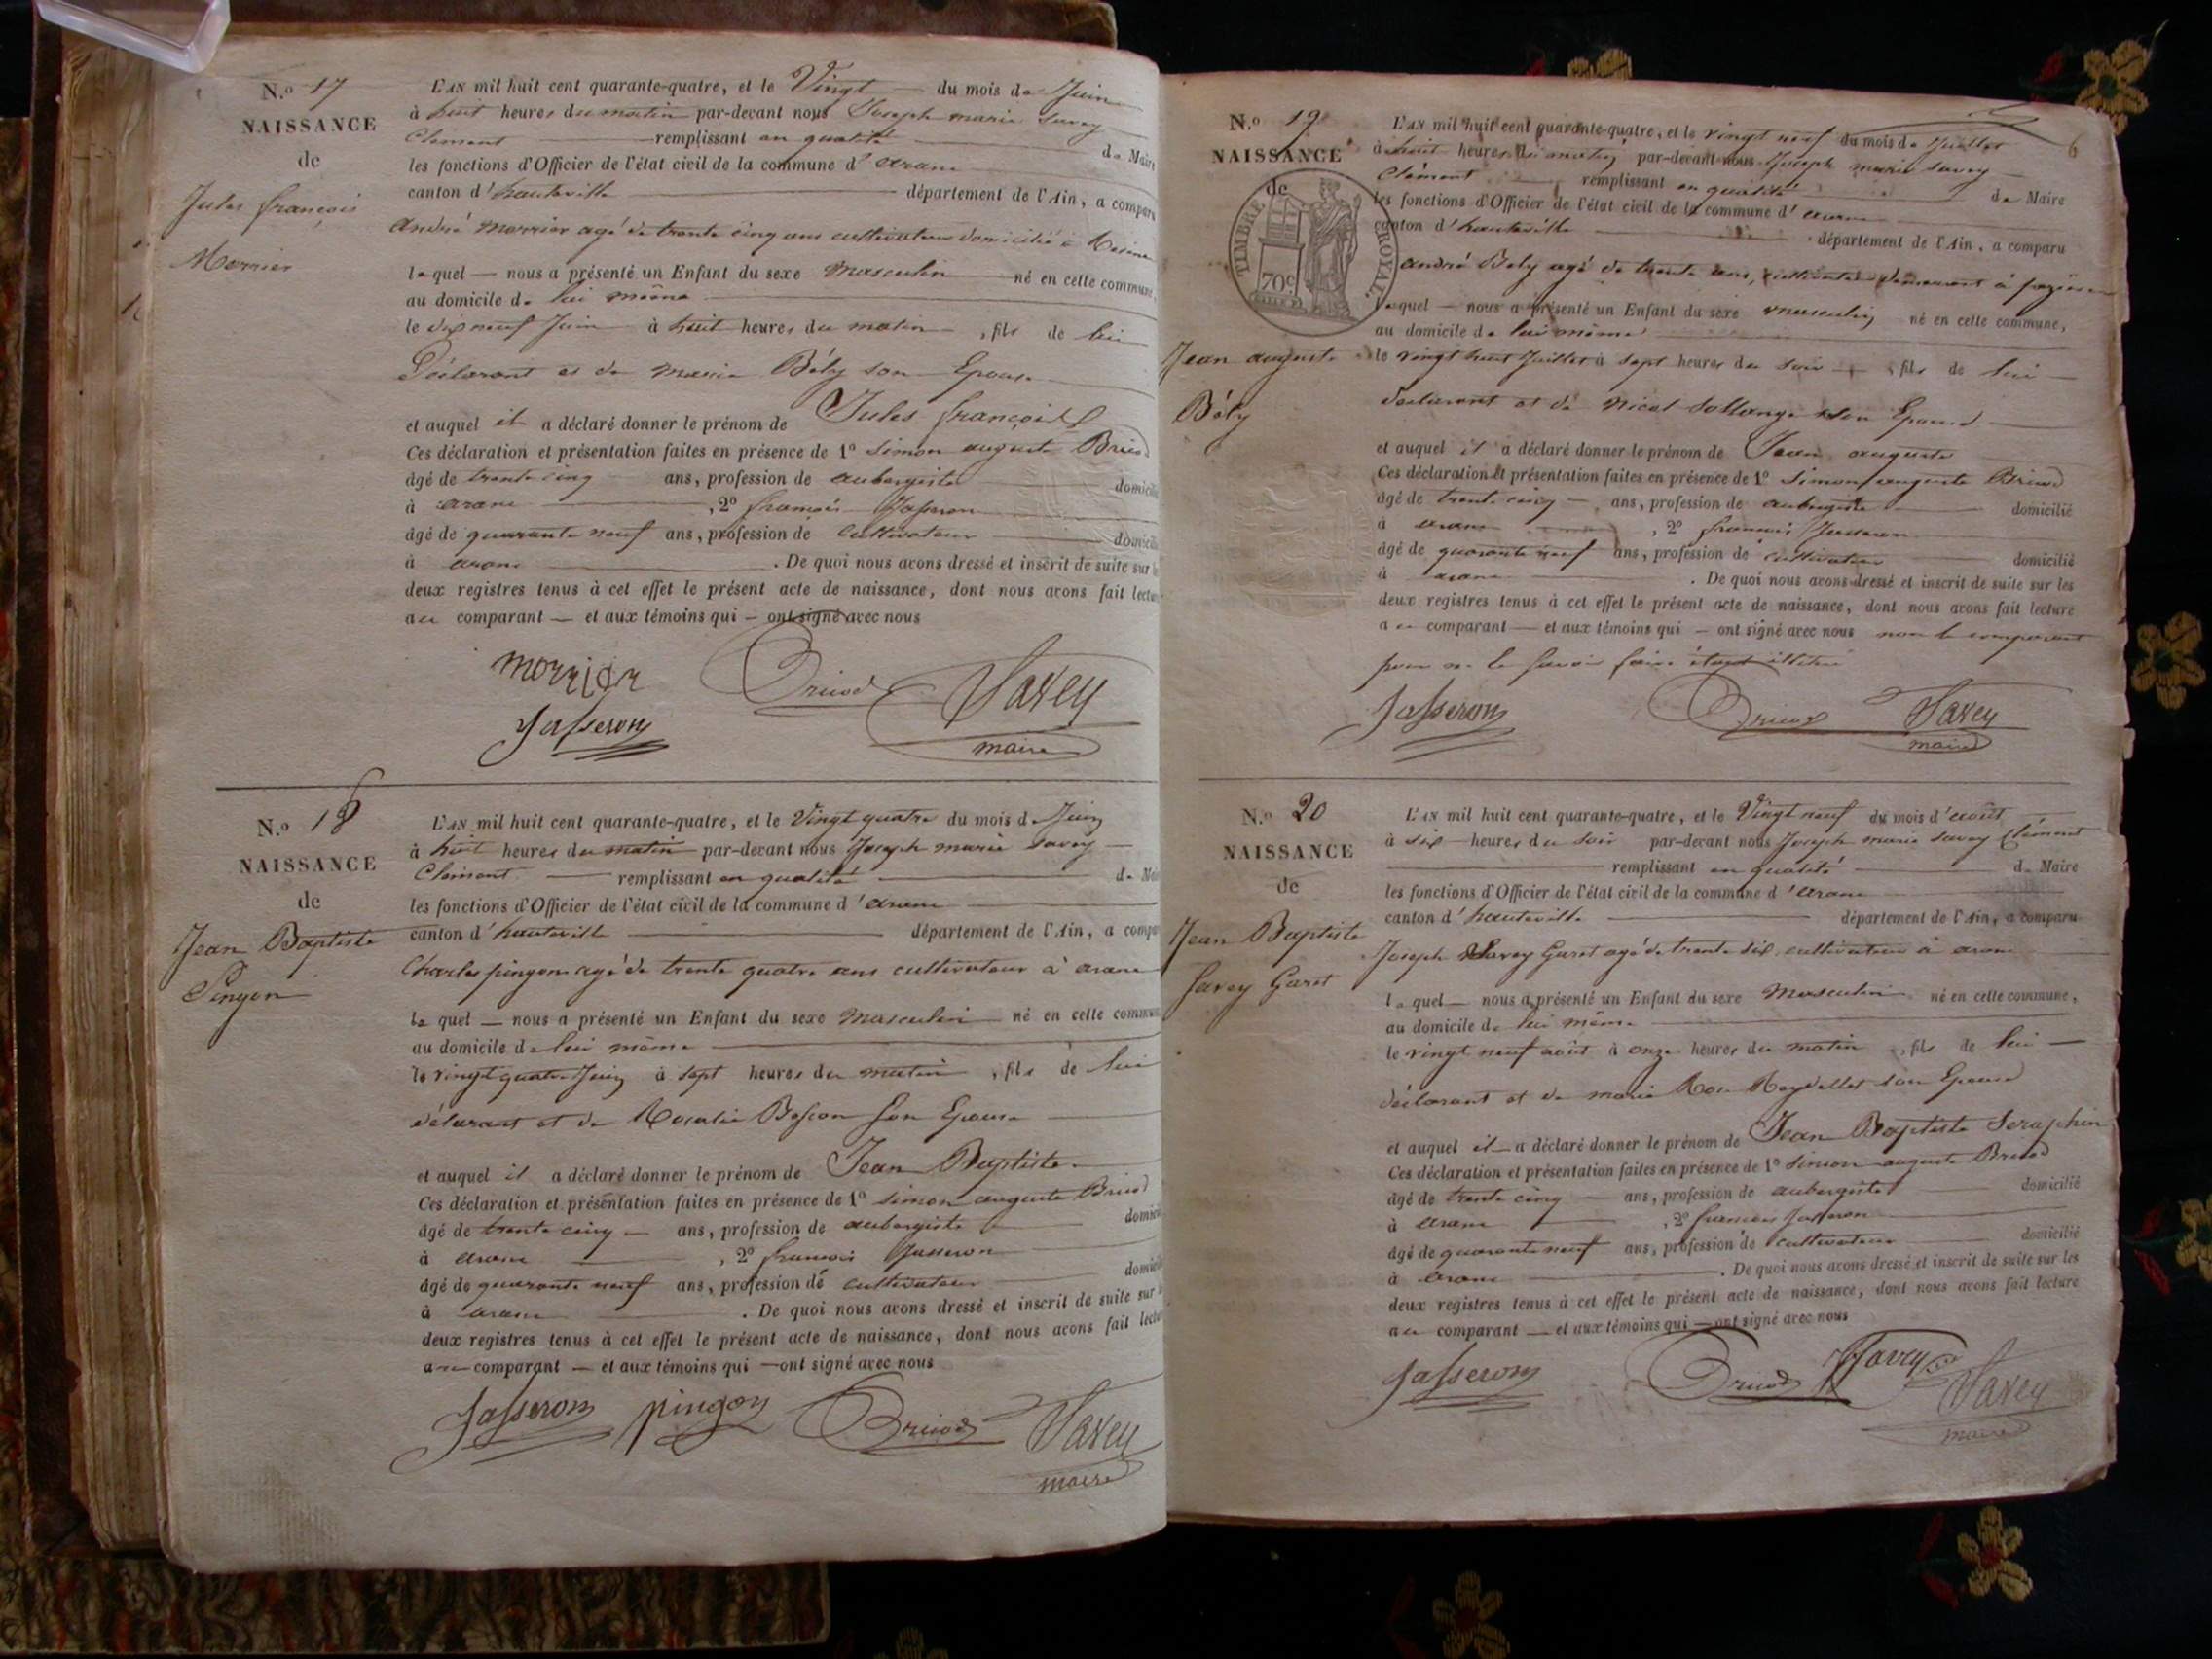 N.o 17
NAISSANCE
de
Jules françois
Morrier
L'AN mil huit cent quarante-quatre, et le Vingt du mois de Juin
à huit heures du matin par-devant nous Joseph marie Savey
Clément remplissant en qualité de Maire
les fonctions d'Officier de l'état civil de la commune d'aranc
canton d'hauteville département de l'Ain, a comparu
André Morrier agé de trente cinq ans cultivateur domicilié à
lequel nous a présenté un Enfant du sexe Masculin né en cette commune,
au domicile de lui même
le dix neuf Juin à huit heures du matin, fils de lui
Déclarant et de marie Bély son Epouse
et auquel il a déclaré donner le prénom de Jules françois
Ces déclaration et présentation faites en présence de 1o Simon auguste Bruod
âgé de trente cinq ans, profession de aubergiste domicilié
à aranc, 2o françois Jasseron
âgé de quarante neuf ans, profession de Cultivateur domicilié
à aranc. De quoi nous avons dressé et inscrit de suite sur les
deux registres tenus à cet effet le présent acte de naissance, dont nous avons fait lecture
au comparant et aux témoins qui ont signé avec nous
morrier Bruod Savey
Jasseron maire
N.o 18
NAISSANCE
de
Jean Baptiste
Pingon
L'AN mil huit cent quarante-quatre, et le Vingt quatre du mois de Juin
à huit heures du matin par-devant nous Joseph marie Savey
Clément remplissant en qualité de Maire
les fonctions d'Officier de l'état civil de la commune d'aranc
canton d'hauteville département de l'Ain, a comparu
Charles pingon agé de trente quatre ans cultivateur à aranc
lequel nous a présenté un Enfant du sexe Masculin né en cette commune
au domicile de lui même
le vingt quatre Juin à sept heures du matin, fils de lui
déclarant et de Rosalie Boscon son Epouse
et auquel il a déclaré donner le prénom de Jean Baptiste
Ces déclaration et présentation faites en présence de 1o Simon auguste Bruod
âgé de trente cinq ans, profession de aubergiste domicilié
à aranc, 2o françois Jasseron
âgé de quarante neuf ans, profession de cultivateur domicilié
à aranc. De quoi nous avons dressé et inscrit de suite sur les
deux registres tenus à cet effet le présent acte de naissance, dont nous avons fait lecture
au comparant et aux témoins qui ont signé avec nous
Jasseron pingon Bruod Savey
maire
6
N.o 19
NAISSANCE
de
TIMBRE ROYAL.
70c
Jean auguste
Bély
L'AN mil huit cent quarante-quatre, et le vingt neuf du mois de Juillet
à huit heures du matin par-devant nous Joseph marie Savey
Clément remplissant en qualité de Maire
les fonctions d'Officier de l'état civil de la commune d'aranc
canton d'hauteville département de l'Ain, a comparu
André Bely agé de trente ans, cultivateur demeurant à
lequel nous a présenté un Enfant du sexe masculin né en cette commune,
au domicile de lui même
le vingt huit Juillet à sept heures du soir, fils de lui
déclarant et de Nicol Sollange son Epouse
et auquel il a déclaré donner le prénom de Jean auguste
Ces déclaration et présentation faites en présence de 1o Simon auguste Bruod
âgé de trente cinq ans, profession de aubergiste domicilié
à aranc, 2o françois Jasseron
âgé de quarante neuf ans, profession de cultivateur domicilié
à aranc. De quoi nous avons dressé et inscrit de suite sur les
deux registres tenus à cet effet le présent acte de naissance, dont nous avons fait lecture
au comparant et aux témoins qui ont signé avec nous non le comparant
pour ne le savoir faire étant illitéré
Jasseron Bruod Savey
maire
N.o 20
NAISSANCE
de
Jean Baptiste
Savey Garet
L'AN mil huit cent quarante-quatre, et le Vingt neuf du mois d'août
à six heures du soir par-devant nous Joseph marie Savey Clément
remplissant en qualité de Maire
les fonctions d'Officier de l'état civil de la commune d'aranc
canton d'hauteville département de l'Ain, a comparu
Joseph Savey Garet agé de trente six, cultivateur à aranc
lequel nous a présenté un Enfant du sexe Masculin né en cette commune,
au domicile de lui même
le vingt neuf août à onze heures du matin, fils de lui
déclarant et de marie Rose Reydellet son Epouse
et auquel il a déclaré donner le prénom de Jean Baptiste Seraphin
Ces déclaration et présentation faites en présence de 1o Simon auguste Bruod
âgé de trente cinq ans, profession de aubergiste domicilié
à aranc, 2o françois Jasseron
âgé de quarante neuf ans, profession de cultivateur domicilié
à aranc. De quoi nous avons dressé et inscrit de suite sur les
deux registres tenus à cet effet le présent acte de naissance, dont nous avons fait lecture
au comparant et aux témoins qui ont signé avec nous
Jasseron Bruod Savey Savey
maire